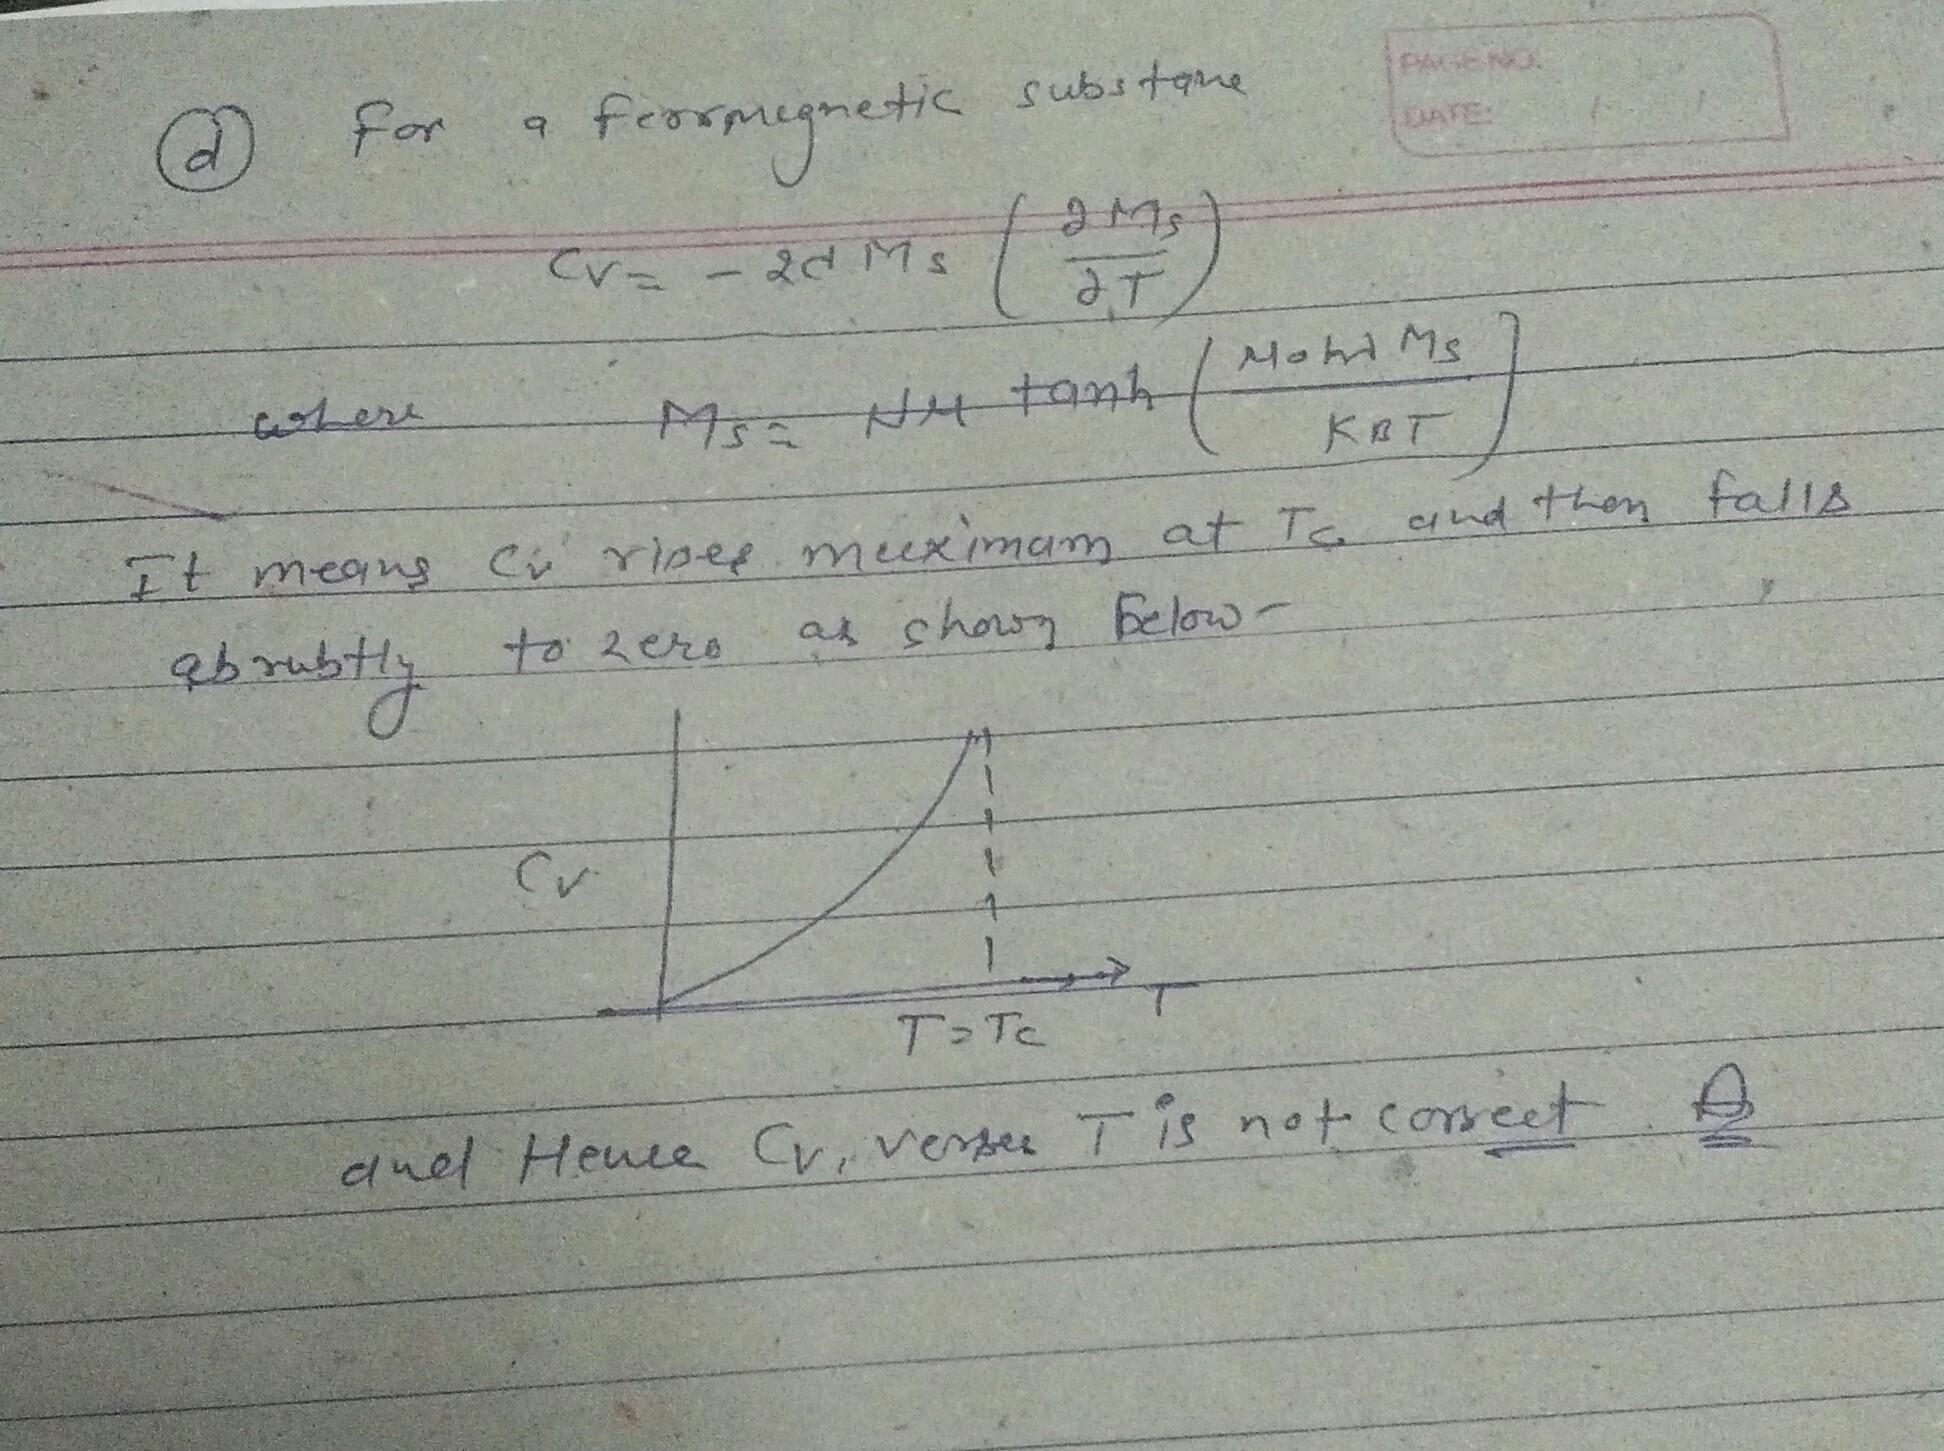 PAGE NO.
DATE: / /
(d) For a ferromegnetic substane
Cv = - 2d Ms (∂Ms/∂T)
where Ms = NM tanh (Mohd Ms / KBT)
It means Cv rises meeximam at Tc and then falls
abrubtly to zero as shown below -
Cv
T
T = Tc
and Hence Cv, verses T is not correct